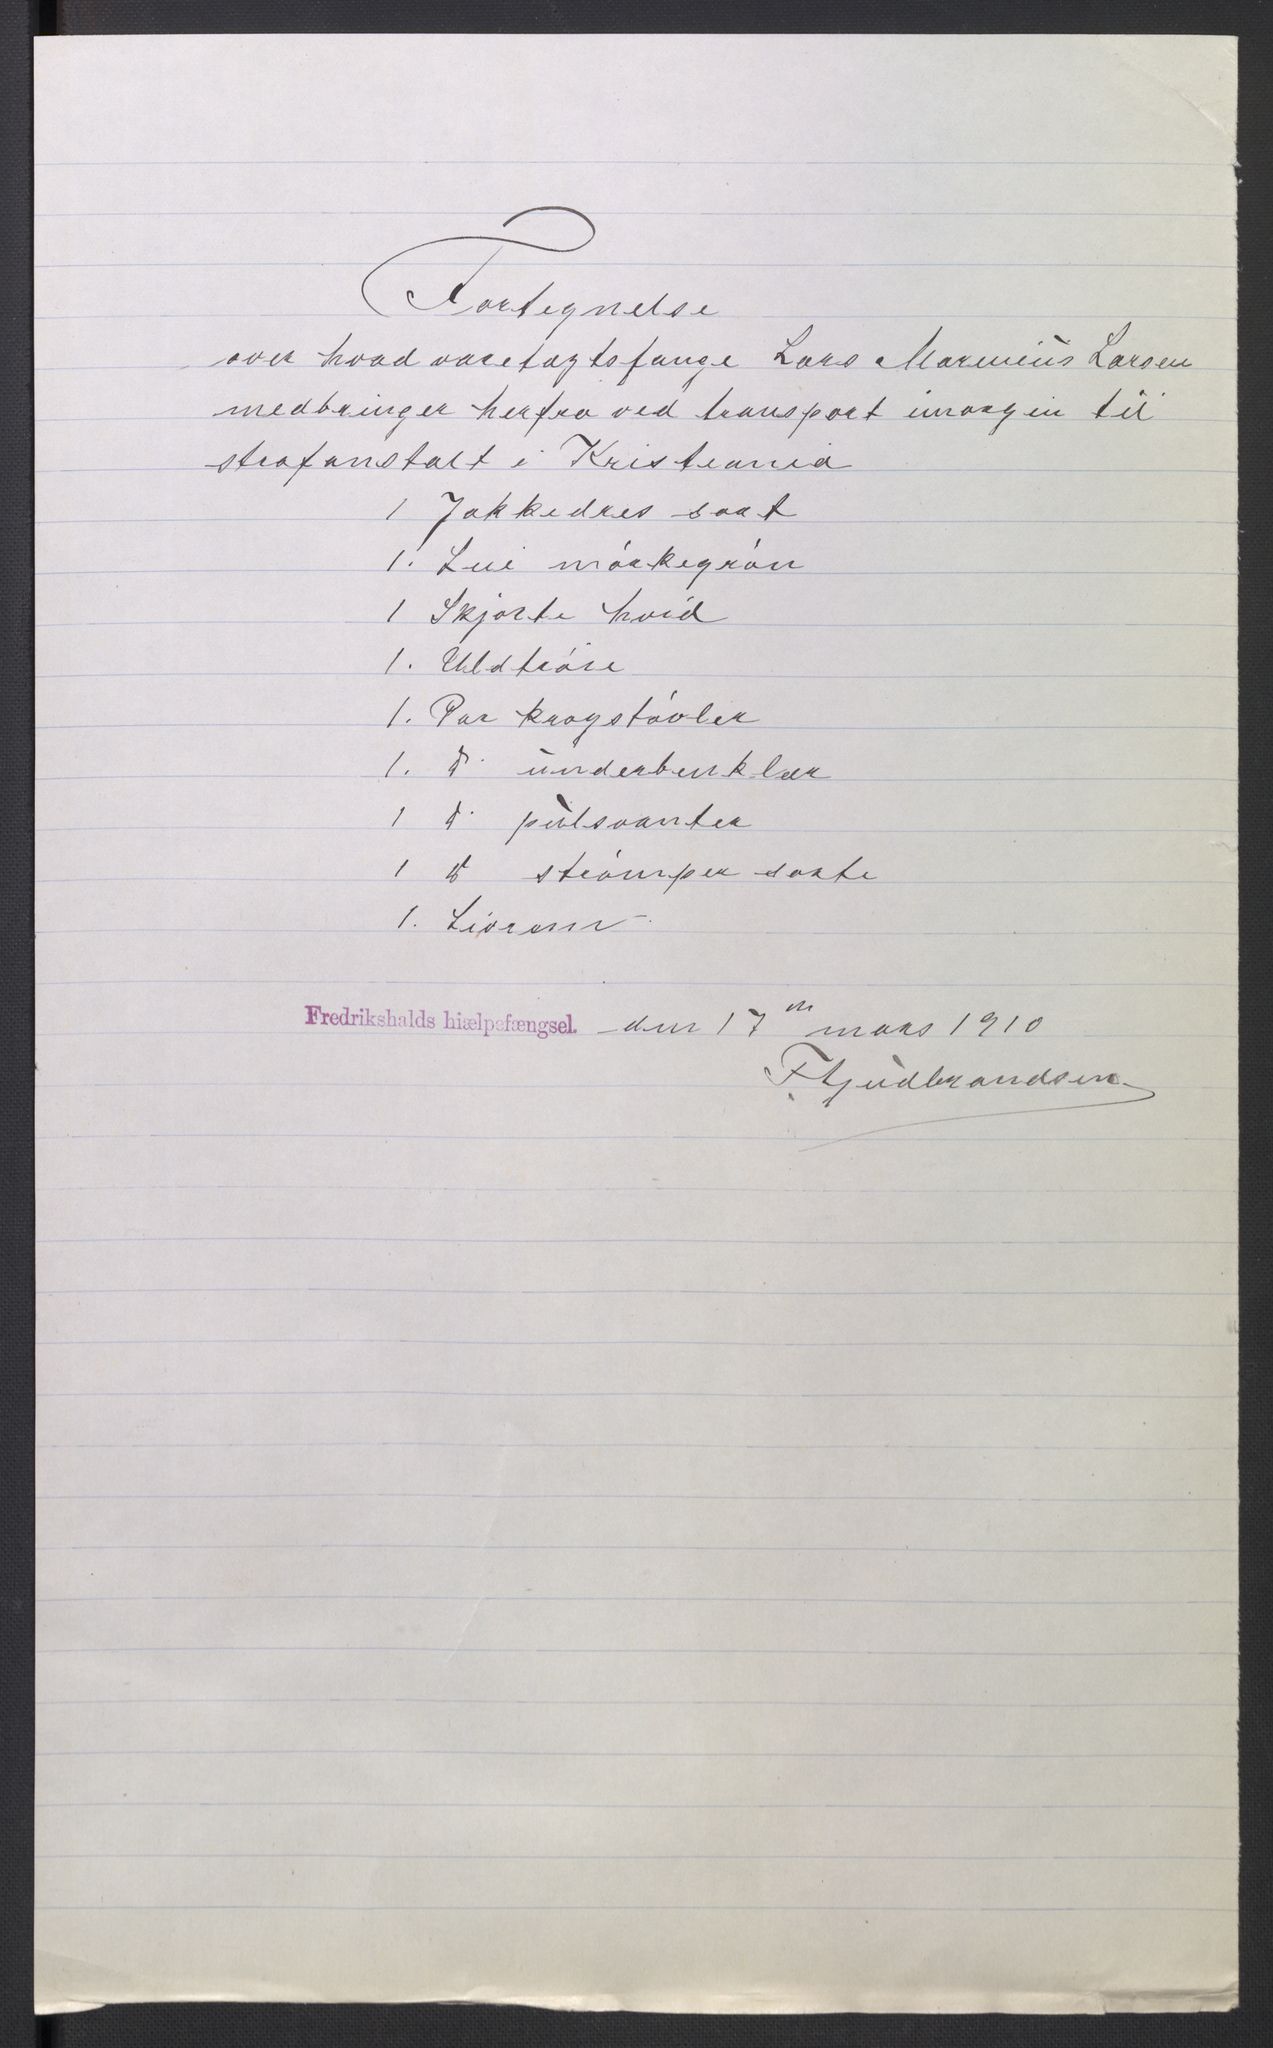 Fortegnelse
over hvad varetægtsfange Lars Marenius Larsen
medbringer herfra ved transport imorgen til
strafanstalt i Kristiania
1 Jakkedres sort
1. Lue mörkegrön
1 Skjorte hvid
1. Uldtröie
1. Par kragstövler
1. do underbenklær
1 do pulsvanter
1 do strömper sorte
1. Livrem
Fredrikshalds hiælpefængsel. den 17en mars 1910
F Gudbrandsen